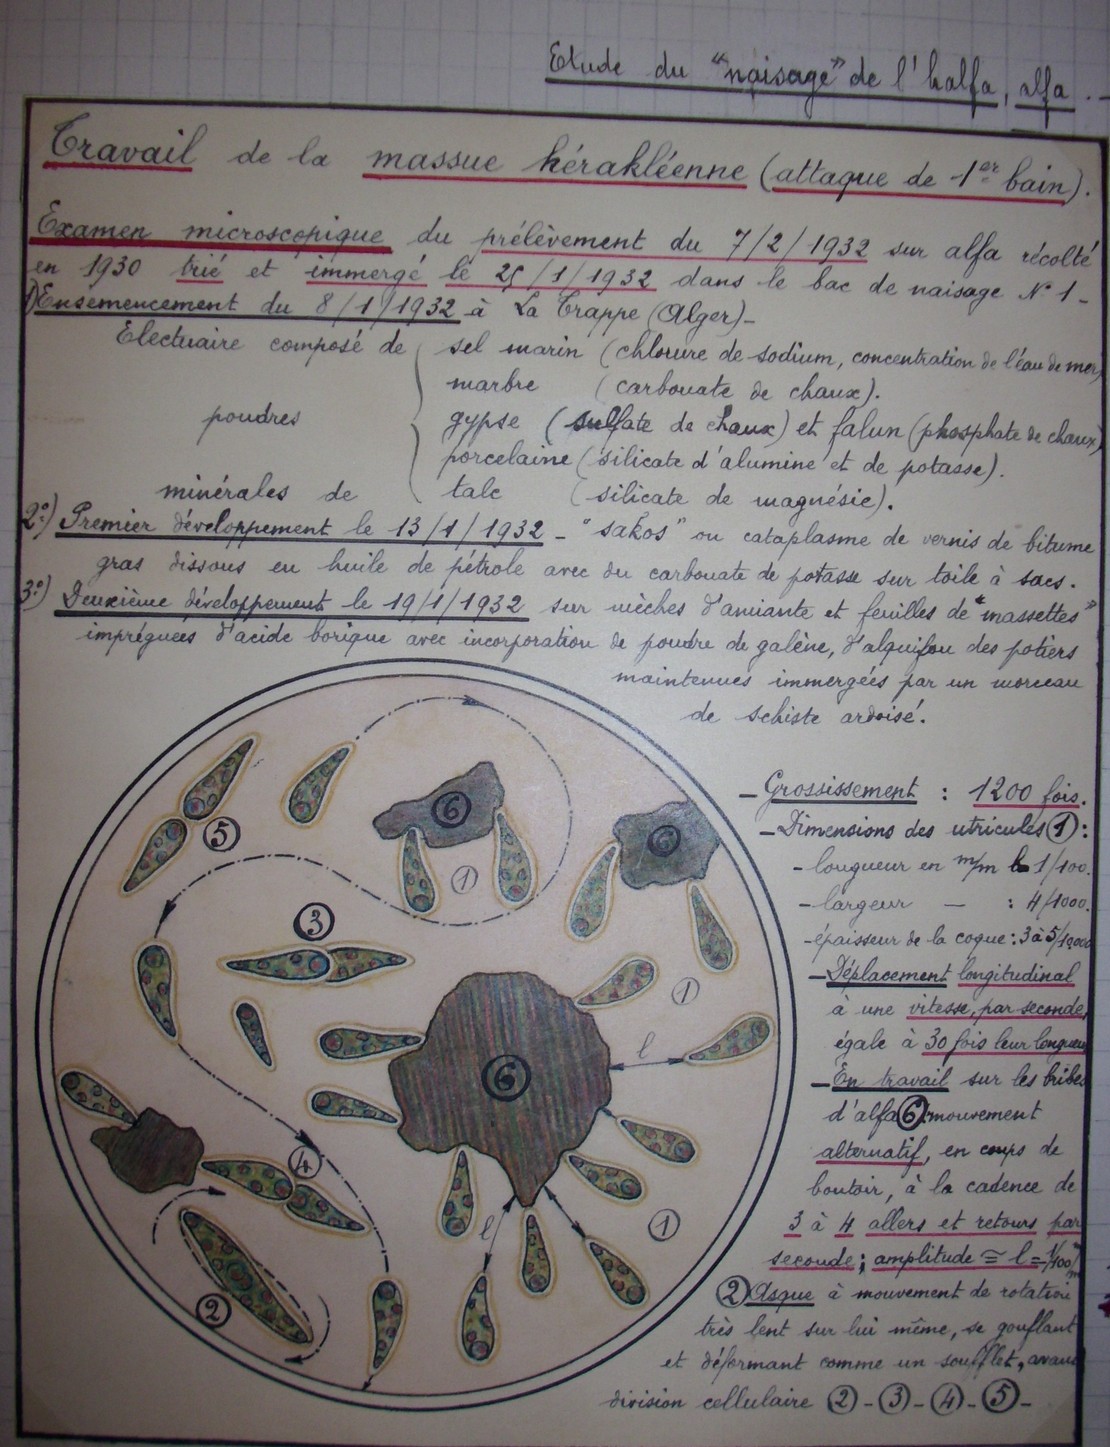 Etude du "naisage" de l'halfa, alfa.-
Travail de la massue hérakléenne (attaque de 1er bain).
Examen microscopique du prélèvement du 7/2/1932 sur alfa récolté
en 1930 trié et immergé le 25/1/1932 dans le bac de naisage N°1-
1°) Ensemencement du 8/1/1932 à La Trappe (Alger)-
Electuaire composé de ( sel marin (chlorure de sodium, concentration de l'eau de mer)
marbre (carbonate de chaux).
poudres gypse (sulfate de chaux) et falun (phosphate de chaux)
porcelaine (silicate d'alumine et de potasse).
minérales de talc (silicate de magnésie).
2°) Premier développement le 13/1/1932 - "sakos" ou cataplasme de vernis de bitume
gras dissous en huile de pétrole avec du carbonate de potasse sur toile à sacs.
3°) Deuxième développement le 19/1/1932 sur mèches d'amiante et feuilles de "massettes"
imprégnées d'acide borique avec incorporation de poudre de galène, d'alquifou des potiers
maintenues immergées par un morceau
de schiste ardoisé.
- Grossissement : 1200 fois.
- Dimensions des utricules 1 :
- longueur en m/m l 1/100.
- largeur - : 4/1000.
- épaisseur de la coque : 3 à 5/10000
- Déplacement longitudinal
à une vitesse, par seconde,
égale à 30 fois leur longueur
- En travail sur les bribes
d'alfa 6 : mouvement
alternatif, en coups de
boutoir, à la cadence de
3 à 4 allers et retours par
seconde ; amplitude ≅ l = 1/100 m/m
2 Asque à mouvement de rotation
très lent sur lui même, se gonflant
et déformant comme un soufflet, avant
division cellulaire 2 - 3 - 4 - 5 -
6
6
5
1
3
1
l
6
4
1
l
2